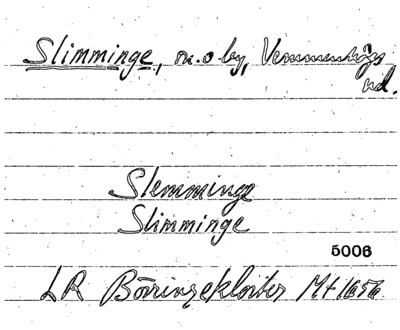 Slimminge, sn. o by, Vemmenhögs
hd.
Slemminge
Slimminge
5006
LR Börringekloster Mt 1656